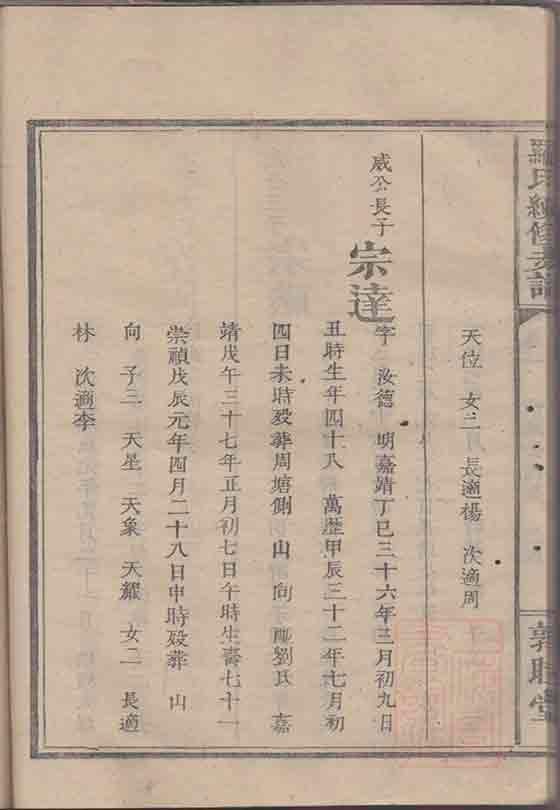 羅氏續修支譜
敦睦堂
天位 女二 長適楊 次適周
威公長子 宗達
字 汝德 明嘉靖丁巳三十六年三月初九日
丑時生年四十八 萬歷甲辰三十二年七月初
四日未時歿葬周塘側 山 向 配劉氏 嘉
靖戊午三十七年正月初七日午時生壽七十一
崇禎戊辰元年四月二十八日申時歿葬 山
向 子三 天星 天象 天耀 女二 長適
林 次適李